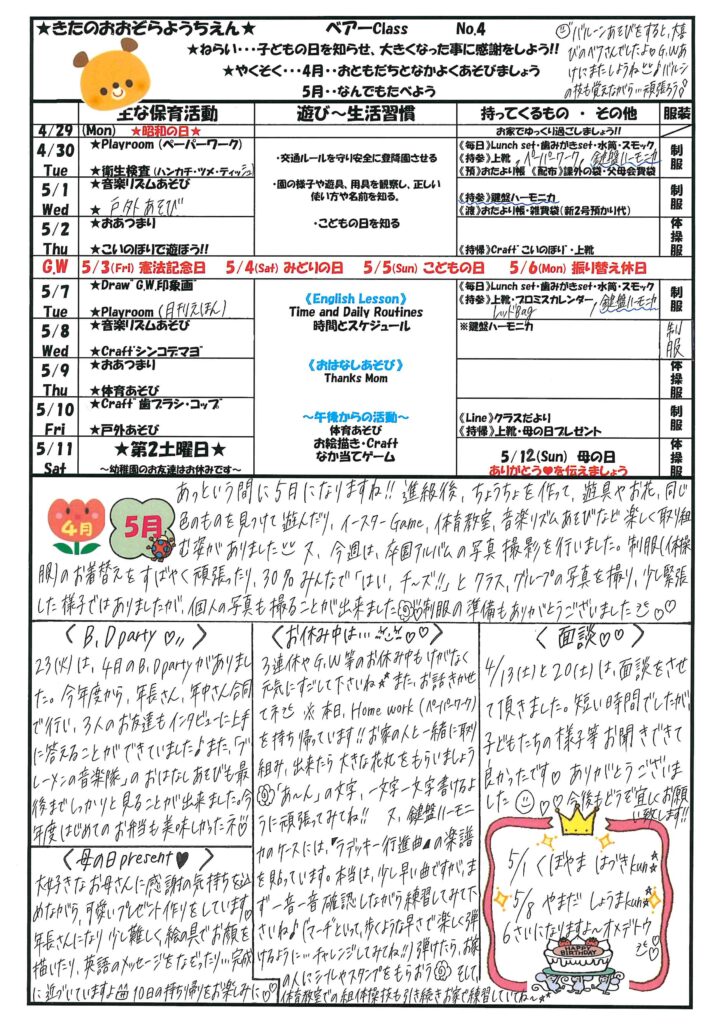 ★きたのおおぞらようちえん★ ベアーClass No.4
★ねらい・・・子どもの日を知らせ、大きくなった事に感謝をしよう!!
★やくそく・・・4月・・おともだちとなかよくあそびましょう
5月・・なんでもたべよう
バルーンあそびをすると、大喜
びのベアさんでしたよ♡G.W あ
けにまたしようね♪バルーン
の技も覚えながら…頑張ろう!
主な保育活動 遊び～生活習慣 持ってくるもの・その他 服装
4/29 (Mon) ★昭和の日★ お家でゆっくり過ごしましょう!!
4/30 Tue
★Playroom (ペーパーワーク)
★衛生検査 (ハンカチ・ツメ・ティッシュ)
・交通ルールを守り安全に登降園させる
《毎日》Lunch set・歯みがきset・水筒・スモック
《持参》上靴、ペーパーワーク、鍵盤ハーモニカ
《預》おたより帳 《配布》課外の袋・父母会費袋
制服
5/1 Wed
★音楽リズムあそび
★戸外あそび
・園の様子や遊具、用具を観察し、正しい
使い方や名前を知る。
《持参》鍵盤ハーモニカ
《渡》おたより帳・雑貨袋(新2号預かり代)
制服
5/2 Thu
★おあつまり
★こいのぼりで遊ぼう!!
・こどもの日を知る
《持帰》Craft゛こいのぼり゛・上靴
体操服
G.W 5/3(Fri) 憲法記念日 5/4(Sat) みどりの日 5/5(Sun) こどもの日 5/6(Mon) 振り替え休日
5/7 Tue
★Draw゛G.W.印象画゛
★Playroom (月刊えほん)
《English Lesson》
Time and Daily Routines
時間とスケジュール
《毎日》Lunch set・歯みがきset・水筒・スモック
《持参》上靴・プロミスカレンダー、鍵盤ハーモニカ
レッドBag
制服
5/8 Wed
★音楽リズムあそび
★Craft゛シンコデマヨ゛
※鍵盤ハーモニカ
制服
5/9 Thu
★おあつまり
★体育あそび
《おはなしあそび》
Thanks Mom
体操服
5/10 Fri
★Craft゛歯ブラシ・コップ゛
★戸外あそび
～午後からの活動～
体育あそび
お絵描き・Craft
なか当てゲーム
《Line》クラスだより
《持帰》上靴・母の日プレゼント
制服
5/11 Sat
★第2土曜日★
～幼稚園のお友達はお休みです～
5/12(Sun) 母の日
ありがとう♥を伝えましょう
体操服
4月 5月
あっという間に5月になりますね!! 進級後、ちょうちょを作って、遊具やお花、同じ
色のものを見つけて遊んだり、イースターGame、体育教室、音楽リズムあそびなど楽しく取り組
む姿がありました 又、今週は、卒園アルバムの写真撮影を行いました。制服(体操
服)のお着替えをすばやく頑張ったり、30名みんなで「はい、チーズ!!」とクラス、グループの写真を撮り、少し緊張
した様子ではありましたが、個人の写真も撮ることが出来ました 制服の準備もありがとうございました♡♡
〈B.Dparty♡〉
23(火)は、4月のB.Dpartyがありまし
た。今年度から、年長さん、年中さん合同
で行い、3人のお友達もインタビューに上手
に答えることができていました♪また、「ブ
レーメンの音楽隊」のおはなしあそびも最
後までしっかりと見ることが出来ました。今
年度はじめてのお弁当も美味しかったネ♡
〈母の日present♥〉
大好きなお母さんに感謝の気持ちを込
めながら、可愛いプレゼント作りをしています♡
年長さんになり少し難しく絵の具でお顔を
描いたり、英語のメッセージをなぞったり…完成
に近づいていますよ 10日の持ち帰りをお楽しみに♡
〈お休み中は…♡♡〉
3連休やG.W等のお休み中もけがなく
元気にすごして下さいね☆また、お話きかせ
てネ ※本日、Home work (ペーパーワーク)
を持ち帰っています!!お家の人と一緒に取り
組み、出来たら大きな花丸をもらいましょう
「あ～ん」の文字、一文字一文字書けるよ
うに頑張ってみてね!! 又、鍵盤ハーモニ
カのケースには、『ラデッキー行進曲』の楽譜
を貼っています。本当は、少し早い曲ですが、ま
ず一音一音確認しながら練習してみて下
さいね♪(マーチといって、歩くような早さで楽しく弾
けるように…チャレンジしてみてね!!)弾けたら、お家
の人にシールやスタンプをもらおう そして、
体育教室での組体操技も引き続きお家で練習していてね～
〈面談♡♡〉
4/13(土)と20(土)は、面談をさせ
て頂きました。短い時間でしたが、
子どもたちの様子等お聞きできて
良かったです♡ ありがとうございま
した♡♡今後もどうぞ宜しくお願
い致します!!
5/1 くぼやま はづきkun☆
5/8 やまだ しょうまkun☆
6さいになりますよ～オメデトウ
HAPPY BIRTHDAY